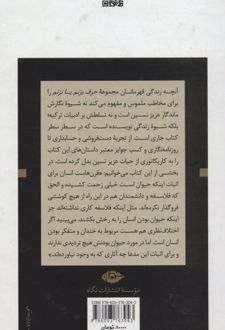 آنچه زندگی قهرمانان مجموعهٔ حرف بزنم یا نزنم را
برای مخاطب ملموس و مفهوم می‌کند نه شیوهٔ نگارش
ماندگار عزیز نسین است و نه تسلطش بر ادبیات ترکیه؛
بلکه شیوهٔ زندگی نویسنده است که در سطر سطر
کتاب جاری است. از تجربهٔ دست‌فروشی و حسابداری تا
روزنامه‌نگاری و کسب جوایز معتبر داستان‌های این کتاب
را به کاریکاتوری از حیات عزیز نسین بدل کرده است. در
بخشی از این کتاب می‌خوانیم: قرن‌هاست انسان برای
اثبات اینکه حیوان است خیلی زحمت کشیده و الحق
که فلاسفه و دانشمندان هم در این راه از هیچ کوششی
فروگذار نکرده‌اند. مثل اینکه فلاسفه کاری نداشته‌اند جز
اینکه حیوان بودن انسان را به رخش بکشند. می‌بینید اگر
اختلاف‌نظری هم هست مربوط به خندان و متفکر بودن
انسان است اما در مورد حیوان بودنش هیچ تردیدی ندارند
و برای اثبات این مدعا چه آثاری که به وجود نیاورده‌اند.»
مؤسسهٔ انتشارات نگاه
ISBN: 978-600-376-304-3
تومان